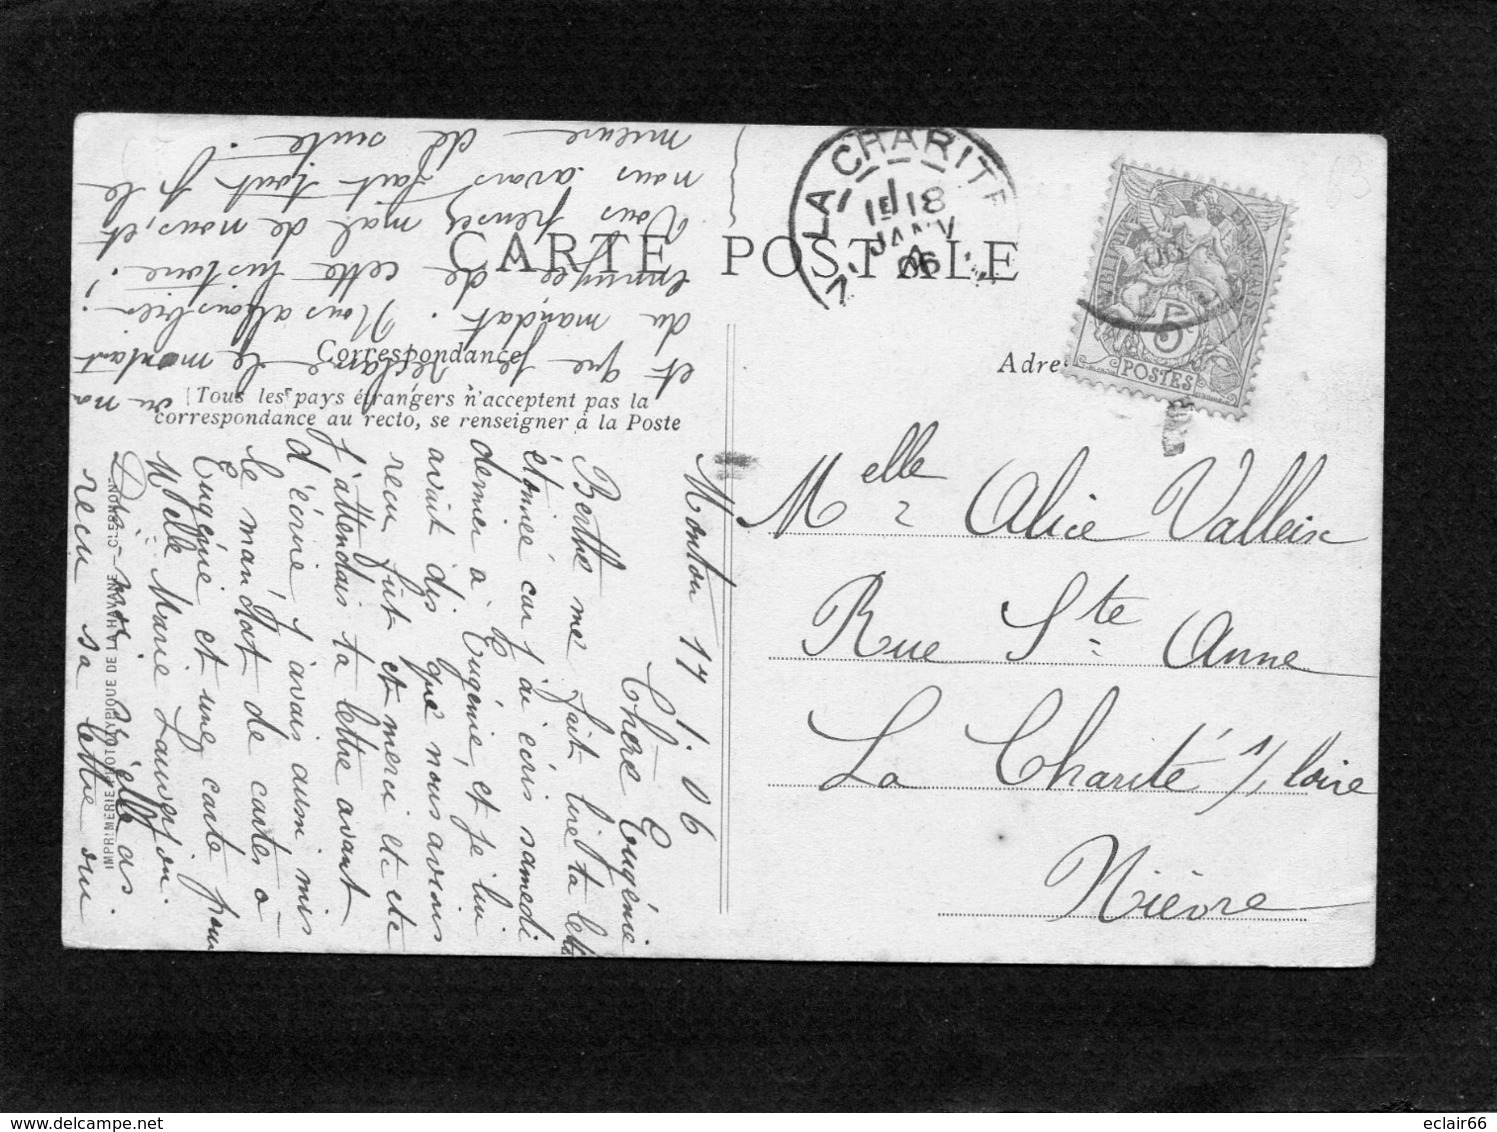 CARTE POSTALE
Correspondance
(Tous les pays étrangers n'acceptent pas la
correspondance au recto, se renseigner à la Poste
Adre
LA CHARITE
1E/18
JANV
06
POSTES
5
Melle Alice Valleix
Rue Ste Anne
La Charité s/ loire
Nièvre
Monton 17/1/06
Chère Eugénie
Berthe me fait lire ta lettre
étonné car j'ai écris samedi
dernier à Eugénie, et je lui
avait dis que nous avions
recu fût et merci et etc
J'attendais ta lettre avant
d'écrire j'avais aussi mis
le mandat de cartes à
Eugénie et une carte pour
Melle Marie Lauverjon.
Dis moi si elle as
recu sa lettre oui
ou na
et que je réclame le montant
du mandat. Nous allons bien!
ennuyée de cette histoire!
Vous pensez mal de nous, et
nous avons fait tout p. le
mieux de suite!
IMPRIMERIE PHOTOTYPIQUE DE LA HAVANE - CLERMONT
eclair66